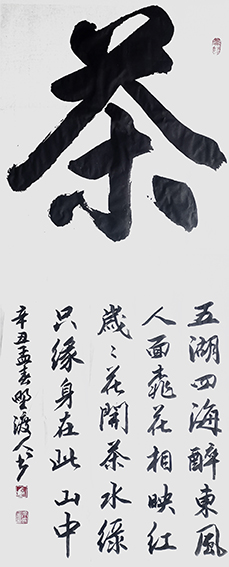 茶
五湖四海醉東風
人面桃花相映紅
歲々花開茶水綠
只緣身在此山中
辛丑孟春野渡人书